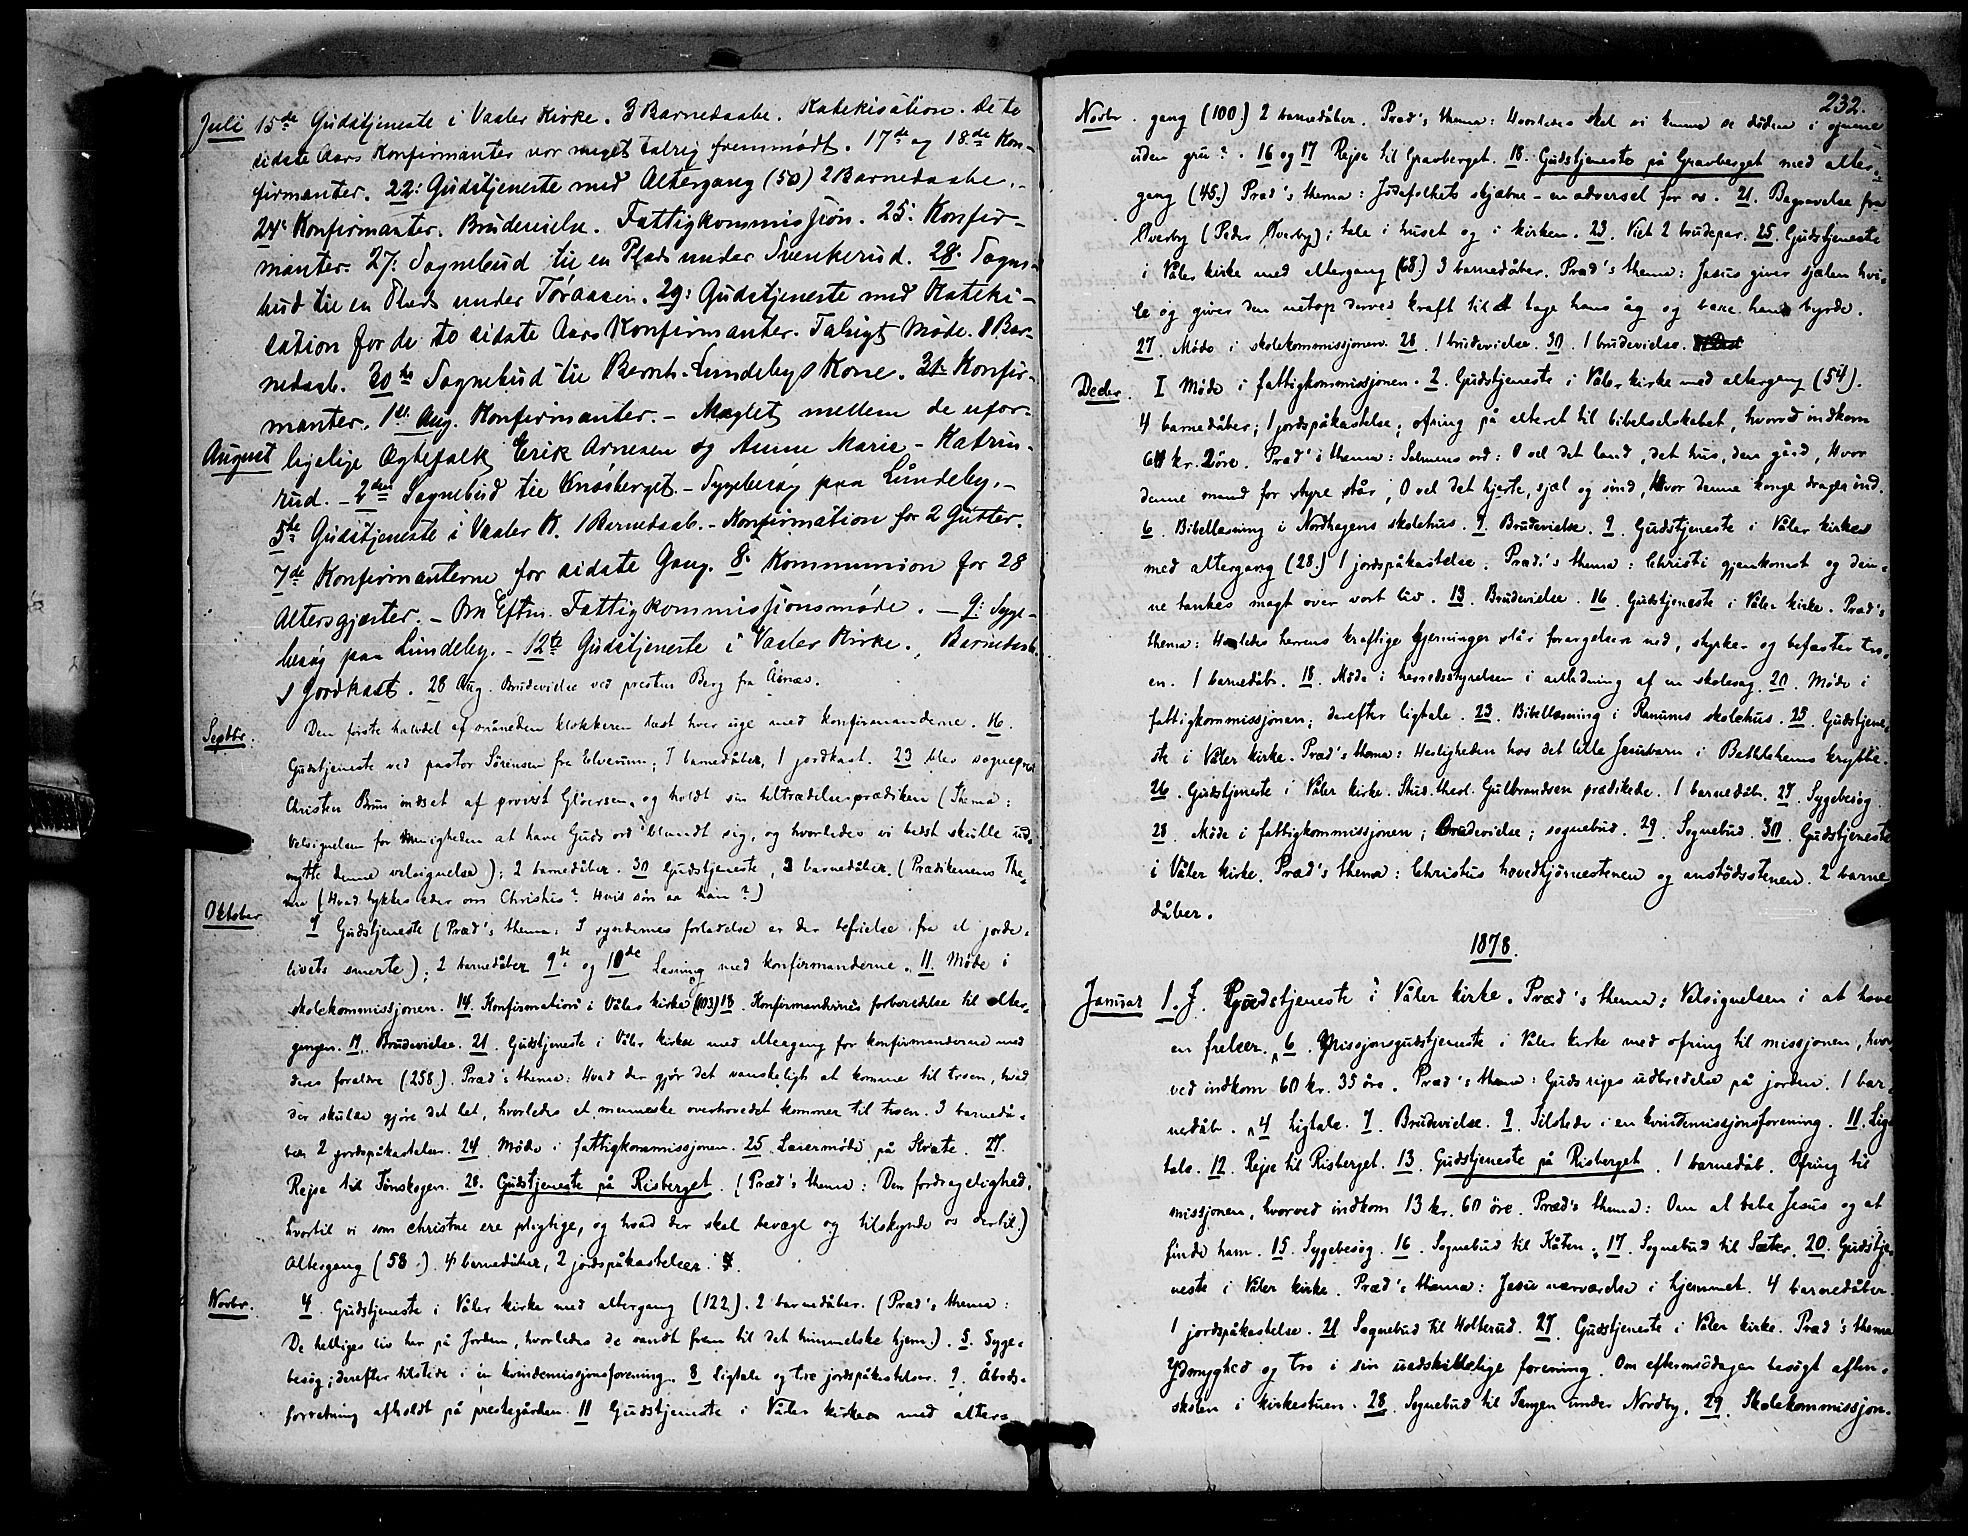 Juli 15de Gudstjeneste i Vaaler Kirke. 3 Barnedaabe. Katekisation. De to
sidste Aars Konfirmanter var meget talrig fremmødt. 17de og 18de Kon-
firmanter. 22: Gudstjeneste med Altergang (50) 2 Barnedaabe.
24: Konfirmanter. Brudevielse. Fattigkommission. 25: Konfir-
manter. 27: Sognebud til en Plads under Svenkerud. 28: Sogne-
bud til en Plads under Toraasen. 29: Gudstjeneste med Kateki-
sation for de to sidste Aars Konfirmanter. Talrigt Møde. 1 Bar-
nedaab. 30te Sognebud til Bernh. Lundebys Kone. 31. Konfir-
manter. 1ste Aug. Konfirmanter. - Mæglet mellem de ufor-
August ligelige Ægtefolk Erik Arnesen og Anne Marie - Katrin-
rud. - 2den Sognebud til Knosberget. - Sygebesøg paa Lundeby. -
5te Gudstjeneste i Vaaler K. 1 Barnedaab. - Konfirmation for 2 Gutter.
7de Konfirmanterne for sidste Gang. 8. Kommunion for 28
Altersgjæster. - Om Eftm. Fattigkommissionsmøde. - 9: Syge-
besøg paa Lundeby. - 12te Gudstjeneste i Vaaler Kirke. Barnedaab.
1 Jordkast. 28 Aug. Brudevielse ved presten Berg fra Åsnæs.
Septbr. Den første halvdel af måneden klokkeren læst hver uge med konfirmanderne. 16.
Gudstjeneste ved pastor Sørensen fra Elverum; 7 barnedåber, 1 jordkast. 23 blev sogneprest
Christen Brun indsat af provst Gløersen og holdt sin tiltrædelsesprædiken (Thema:
Velsignelsen for menigheden at have Guds ord iblandt sig, og hvorledes vi bedst skulle ud-
nytte denne velsignelse); 2 barnedåber. 30 Gudstjeneste, 3 barnedåber. (Prædikenens The-
ma (Hvad tykkes eder om Christus? Hvis søn er han?)
Oktober 7 Gudstjeneste (Præd's thema: I syndernes forladelse er der befrielse fra et jorde-
livets smerte); 2 barnedåber 9de og 10de Læsning med konfirmanderne. 11. Møde i
skolekommissjonen. 14. Konfirmation i Våler kirke (103) 18. Konfirmandernes forberedelse til alter-
gangen. 19. Brudevielse. 21. Gudstjeneste i Våler kirke med altergang for konfirmanderne med
deres forældre (258). Præd's thema: Hvad der gjør det vanskeligt at komme til troen, hvad
der skulde gjøre det let, hvorledes et menneske overhovedet kommer til troen. 3 barnedå-
ber 2 jordspåkastelser. 24. Møde i fattigkommissjonen. 25. Lærermøde på Stræte. 27.
Rejse til Finskogen. 28. Gudstjeneste på Risberget. (Præd's thema: Den fordragelighed,
hvortil vi som christne ere pligtige, og hvad der skal bevæge og tilskynde os dertil.)
Altergang (58.) 4 barnedåber, 2 jordspåkastelser.
Novbr. 4. Gudstjeneste i Våler kirke med altergang (122). 2 barnedåber. (Præd's thema:
De helliges liv her på Jorden, hvorledes de vandt frem til det himmelske hjem.). 5. Syge-
besøg; derefter tilstede i en kvindemissjonsforening. 8 Ligtale og tre jordspåkastelser. 9. Åbods-
forretning afholdt på prestegården. 11 Gudstjeneste i Våler kirke med alter-
232.
Novbr. gang (100.) 2 barnedåber. Præd's thema: Hvorledes skal vi kunne se døden i øjnene
uden gru?. 16 og 17 Rejse til Gravberget. 18. Gudstjeneste på Gravberget med alter-
gang (45.) Præd's thema: Jødefolkets skjæbne - en advarsel for os. 21. Begravelse fra
Øverby (Peder Øverby); tale i huset og i kirken. 23. Viet 2 brudepar. 25. Gudstjeneste
i Våler kirke med altergang (68.) 3 barnedåber. Præd's thema: Jesus giver sjælen hvi-
le og giver den netop derved kraft til at tage hans åg og bære hans byrde.
27. Møde i skolekommissjonen. 28. 1 brudevielse. 30. 1 brudevielse.
Decbr. 1 Møde i fattigkommissjonen. 2. Gudstjeneste i Våler kirke med altergang (54).
4 barnedåber; 1 jordspåkastelse; ofring på alteret til bibelselskabet, hvorved indkom
60 kr. 2 øre. Præd's thema: Salmens ord: O vel det land, det hus, den gård, Hvor
denne mand for styre står, O vel det hjerte, sjæl og sind, Hvor denne konge drager ind.
6. Bibellæsning i Nordhagens skolehus. 7. Brudevielse. 9. Gudstjeneste i Våler kirke
med altergang (28.) 1 jordspåkastelse. Præd's thema: Christi gjenkomst og den-
ne tankes magt over vort liv. 13. Brudevielse. 16. Gudstjeneste i Våler kirke. Præd's
thema: Hvorledes herrens kraftige gjerninger slår forargelsen ned, styrker og befæster tro-
en. 1 barnedåb. 18. Møde i herredsstyrelsen i anledning af en skolesag. 20. Møde i
fattigkommissjonen; derefter ligtale. 23. Bibellæsning i Ranums skolehus. 25. Gudstjene-
ste i Våler kirke. Præd's thema: Herligheden hos det lille Jesubarn i Bethlehems krybbe.
26. Gudstjeneste i Våler kirke. Stud. theol. Gulbrandsen prædikede. 1 barnedåb. 27. Sygebesøg.
28. Møde i fattigkommissjonen; Brudevielse; sognebud. 29. Sognebud. 30. Gudstjeneste
i Våler kirke. Præd's thema: Christus hovedhjørnestenen og anstødsstenen. 2 barne
dåber.
1878.
Januar 1. Gudstjeneste i Våler kirke. Præd's thema: Velsignelsen i at have
en frelser. 6. Missjonsgudstjeneste i Våler kirke med ofring til missjonen, hvor
ved indkom 60 kr. 35 øre. Præd's thema: Guds riges udbredelse på jorden. 1 bar-
nedåb. 4 Ligtale. 7. Brudevielse. 9. Tilstede i en kvindemissjonsforening. 11. Lig-
tale. 12. Rejse til Risberget. 13. Gudstjeneste på Risberget. 1 barnedåb. Ofring til
missjonen, hvorved indkom 13 kr. 60 øre. Præd's thema: Om at tabe Jesus og at
finde ham. 15. Sygebesøg. 16. Sognebud til Kåten. 17. Sognebud til Sæter. 20. Gudstje-
neste i Våler kirke. Præd's thema: Jesu nærværelse i hjemmet. 4 barnedåber.
1 jordspåkastelse. 21 Sognebud til Holterud. 27. Gudstjeneste i Våler kirke. Præd's thema
Ydmyghed og tro i sin uadskillelige forening. Om eftermiddagen besøgt aften-
skolen i kirkestuen. 28. Sognebud til Tangen under Nordby. 29. Skolekommissjon-